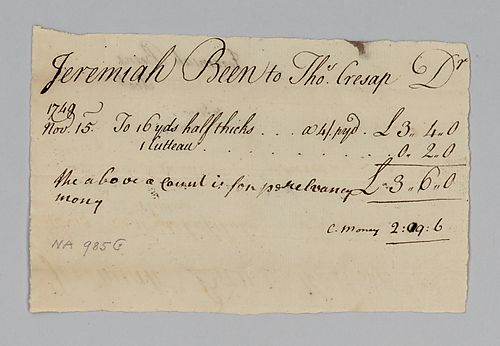 Jeremiah Been to Tho.s Cresap Dr
1749
Nov.r 15. To 16 yds half thicks . . . a 4/. pyd. £ 3 . 4 . 0
1 Cutteau . . . . . . . . . . " 0 . 2 . 0
the above a count is for penselvaney £ 3 . 6 . 0
mony
C. Money 2 : 09 : 6
NA 985G